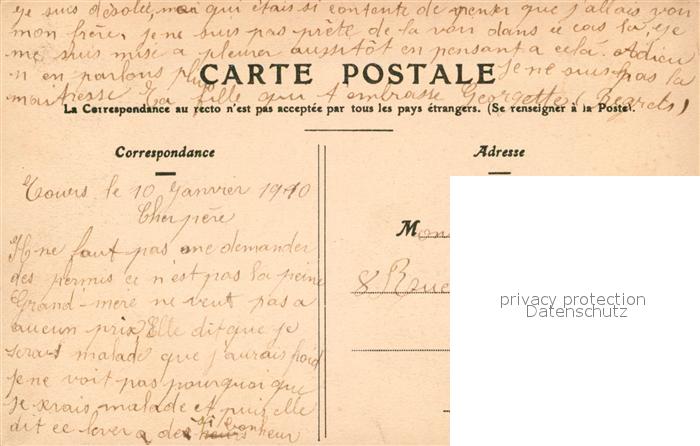 je suis désolée, moi qui étais si contente de penser que j'allais voir
mon frère, je ne suis pas prête de la voir dans ce cas là, je
me suis mise a pleurer aussitôt en pensant a cela. Adieu
n en parlons plus je ne suis pas la
maitresse Ta fille qui t'embrasse Georgette (Regrets)
CARTE POSTALE
La Correspondance au recto n'est pas acceptée par tous les pays étrangers. (Se renseigner à la Poste).
Correspondance
Adresse
Tours le 10 Janvier 1910
Cher père
Il ne faut pas me demander
des permis ce n'est pas la peine
Grand-mère ne veut pas a
aucun prix, Elle dit que je
serais malade que j'aurais froid
je ne voit pas pourquoi que
je serais malade et puis elle
dit ce lever a des si bonne heur
M
8 Rue
privacy protection
Datenschutz